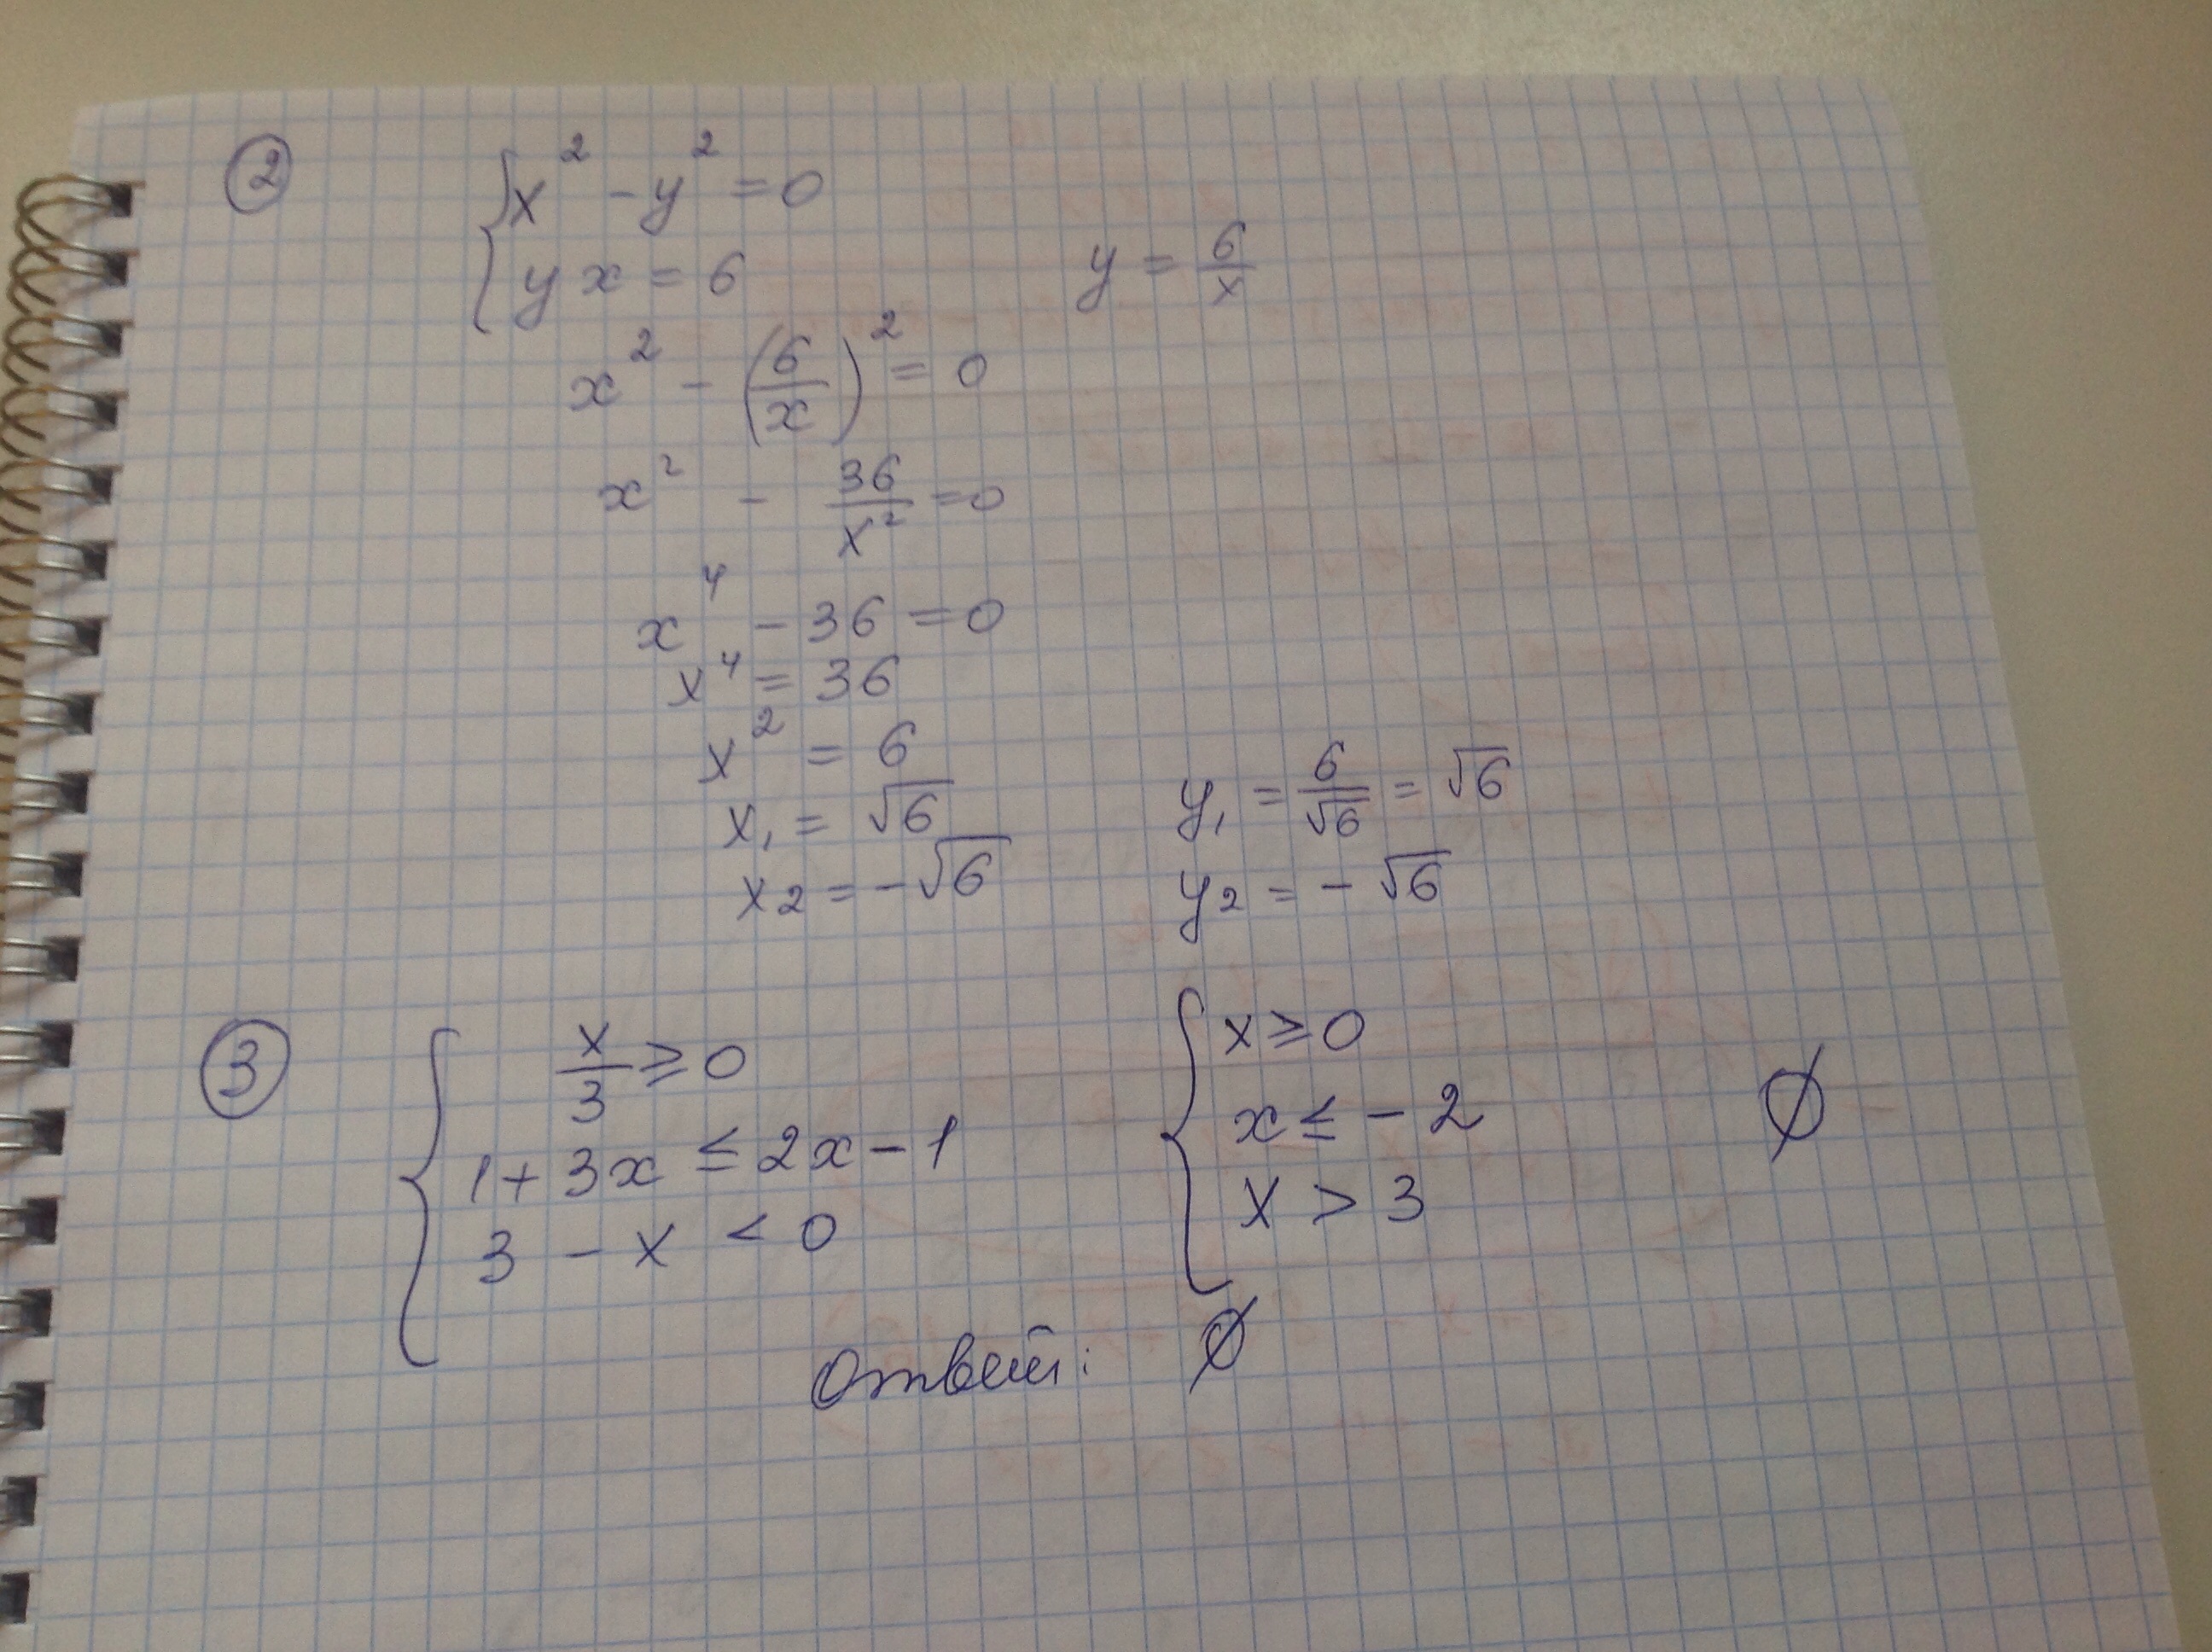 ②
{ x² - y² = 0
y x = 6    y = 6/x
x² - (6/x)² = 0
x² - 36/x² = 0
x⁴ - 36 = 0
x⁴ = 36
x² = 6
x₁ = √6    y₁ = 6/√6 = √6
x₂ = -√6    y₂ = -√6
③
{ x/3 ≥ 0    { x ≥ 0
1 + 3x ≤ 2x - 1    x ≤ -2    ∅
3 - x < 0    x > 3
Ответ: ∅